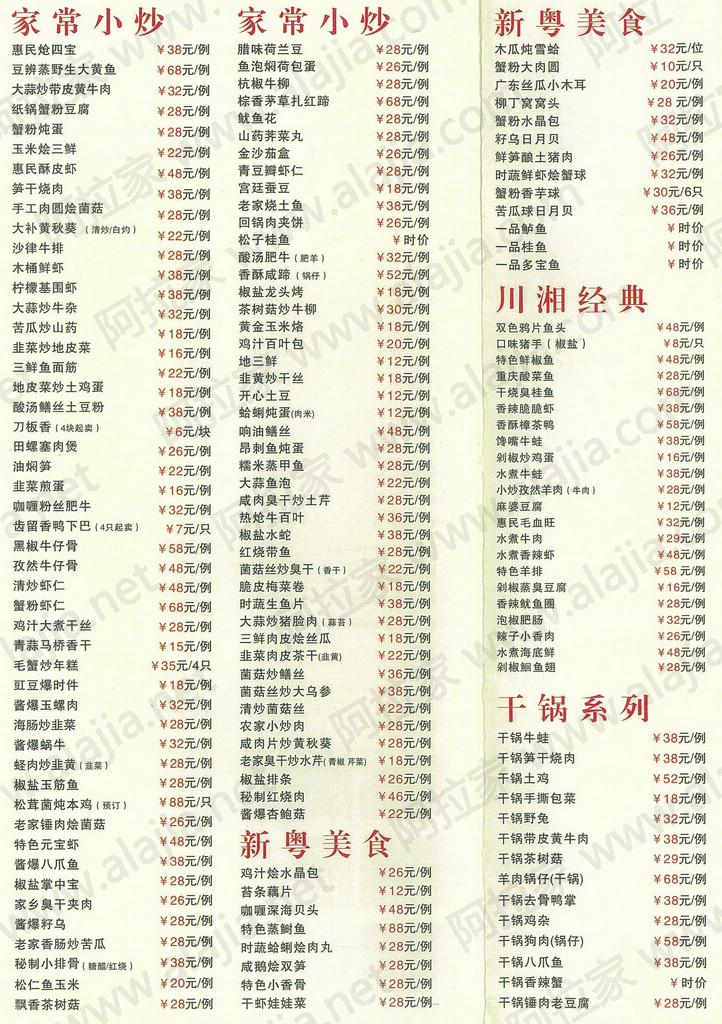 家常小炒
惠民炝四宝 ￥38元/例
豆辨蒸野生大黄鱼 ￥68元/例
大蒜炒带皮黄牛肉 ￥32元/例
纸锅蟹粉豆腐 ￥28元/例
蟹粉炖蛋 ￥28元/例
玉米烩三鲜 ￥22元/例
惠民酥皮虾 ￥48元/例
笋干烧肉 ￥38元/例
手工肉圆烩菌菇 ￥28元/例
大补黄秋葵（清炒/白灼） ￥22元/例
沙律牛排 ￥28元/例
木桶鲜虾 ￥38元/例
柠檬基围虾 ￥38元/例
大蒜炒牛杂 ￥32元/例
苦瓜炒山药 ￥18元/例
韭菜炒地皮菜 ￥16元/例
三鲜鱼面筋 ￥22元/例
地皮菜炒土鸡蛋 ￥18元/例
酸汤鳝丝土豆粉 ￥38元/例
刀板香（4块起卖） ￥6元/块
田螺塞肉煲 ￥26元/例
油焖笋 ￥22元/例
韭菜煎蛋 ￥16元/例
咖喱粉丝肥牛 ￥32元/例
齿留香鸭下巴（4只起卖） ￥7元/只
黑椒牛仔骨 ￥58元/例
孜然牛仔骨 ￥48元/例
清炒虾仁 ￥48元/例
蟹粉虾仁 ￥68元/例
鸡汁大煮干丝 ￥28元/例
青蒜马桥香干 ￥15元/例
毛蟹炒年糕 ￥35元/4只
豇豆爆时件 ￥18元/例
酱爆玉螺肉 ￥32元/例
海肠炒韭菜 ￥28元/例
酱爆蜗牛 ￥32元/例
蛏肉炒韭黄（韭菜） ￥28元/例
椒盐玉筋鱼 ￥28元/例
松茸菌炖本鸡（预订） ￥88元/只
老家锤肉烩菌菇 ￥26元/例
特色元宝虾 ￥48元/例
酱爆八爪鱼 ￥38元/例
椒盐掌中宝 ￥28元/例
家乡臭干夹肉 ￥28元/例
酱爆籽乌 ￥28元/例
老家香肠炒苦瓜 ￥28元/例
秘制小排骨（糖醋/红烧） ￥38元/例
松仁鱼玉米 ￥20元/例
飘香茶树菇 ￥28元/例
家常小炒
腊味荷兰豆 ￥28元/例
鱼泡焖荷包蛋 ￥26元/例
杭椒牛柳 ￥28元/例
棕香茅草扎红蹄 ￥68元/例
鱿鱼花 ￥28元/例
山药荠菜丸 ￥28元/例
金沙茄盒 ￥26元/例
青豆瓣虾仁 ￥28元/例
宫廷蚕豆 ￥18元/例
老家烧土鱼 ￥38元/例
回锅肉夹饼 ￥26元/例
松子桂鱼 ￥时价
酸汤肥牛（肥羊） ￥32元/例
香酥咸蹄（锅仔） ￥52元/例
椒盐龙头烤 ￥18元/例
茶树菇炒牛柳 ￥30元/例
黄金玉米烙 ￥18元/例
鸡汁百叶包 ￥20元/例
地三鲜 ￥12元/例
韭黄炒干丝 ￥18元/例
开心土豆 ￥12元/例
蛤蜊炖蛋(肉米) ￥12元/例
响油鳝丝 ￥48元/例
昂刺鱼炖蛋 ￥28元/例
糯米蒸甲鱼 ￥28元/例
大蒜鱼泡 ￥28元/例
咸肉臭干炒土芹 ￥28元/例
热炝牛百叶 ￥36元/例
椒盐水蛇 ￥38元/例
红烧带鱼 ￥28元/例
菌菇丝炒臭干（香干） ￥22元/例
脆皮梅菜卷 ￥18元/例
时蔬生鱼片 ￥38元/例
大蒜炒猪脸肉（蒜苔） ￥28元/例
三鲜肉皮烩丝瓜 ￥18元/例
韭菜肉皮茶干(韭黄) ￥22元/例
菌菇炒鳝丝 ￥36元/例
菌菇丝炒大乌参 ￥38元/例
清炒菌菇丝 ￥22元/例
农家小炒肉 ￥28元/例
咸肉片炒黄秋葵 ￥28元/例
老家臭干炒水芹(青椒 芹菜) ￥18元/例
椒盐排条 ￥26元/例
秘制红烧肉 ￥46元/例
酱爆杏鲍菇 ￥22元/例
新粤美食
鸡汁烩水晶包 ￥26元/例
苔条藕片 ￥12元/例
咖喱深海贝头 ￥48元/例
特色蒸鲥鱼 ￥88元/例
时蔬蛤蜊烩肉丸 ￥28元/例
咸鹅烩双笋 ￥28元/例
特色小香骨 ￥28元/例
干虾娃娃菜 ￥28元/例
新粤美食
木瓜炖雪蛤 ￥32元/位
蟹粉大肉圆 ￥10元/只
广东丝瓜小木耳 ￥20元/例
柳丁窝窝头 ￥28 元/例
蟹粉水晶包 ￥32元/例
籽乌日月贝 ￥48元/例
鲜笋酿土猪肉 ￥26元/例
时蔬鲜虾烩蟹球 ￥32元/例
蟹粉香芋球 ￥30元/6只
苦瓜球日月贝 ￥36元/例
一品鲈鱼 ￥时价
一品桂鱼 ￥时价
一品多宝鱼 ￥时价
川湘经典
双色鸦片鱼头 ￥48元/例
口味猪手（椒盐） ￥8元/只
特色鲜椒鱼 ￥48元/例
重庆酸菜鱼 ￥28元/例
干烧臭桂鱼 ￥68元/例
香辣脆脆虾 ￥38元/例
香酥樟茶鸭 ￥58元/例
馋嘴牛蛙 ￥38元/例
剁椒炒鸡蛋 ￥16元/例
水煮牛蛙 ￥38元/例
小炒孜然羊肉（牛肉） ￥28元/例
麻婆豆腐 ￥12元/例
惠民毛血旺 ￥32元/例
水煮牛肉 ￥29元/例
水煮香辣虾 ￥48元/例
特色羊排 ￥58元/例
剁椒蒸臭豆腐 ￥16元/例
香辣鱿鱼圈 ￥28元/例
泡椒肥肠 ￥32元/例
辣子小香肉 ￥26元/例
水煮海底鲜 ￥48元/例
剁椒鮰鱼翅 ￥28元/例
干锅系列
干锅牛蛙 ￥38元/例
干锅笋干烧肉 ￥38元/例
干锅土鸡 ￥52元/例
干锅手撕包菜 ￥18元/例
干锅野兔 ￥32元/例
干锅带皮黄牛肉 ￥38元/例
干锅茶树菇 ￥29元/例
羊肉锅仔(干锅) ￥68元/例
干锅去骨鸭掌 ￥38元/例
干锅鸡杂 ￥28元/例
干锅狗肉(锅仔) ￥58元/例
干锅八爪鱼 ￥38元/例
干锅香辣蟹 ￥时价
干锅锤肉老豆腐 ￥28元/例
阿拉家 www.alajia.net